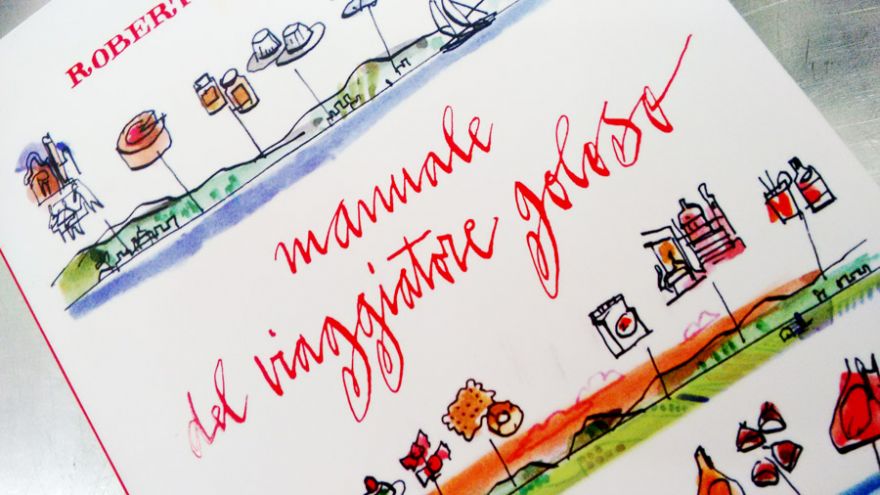 ROBERT
manuale
del viaggiatore goloso